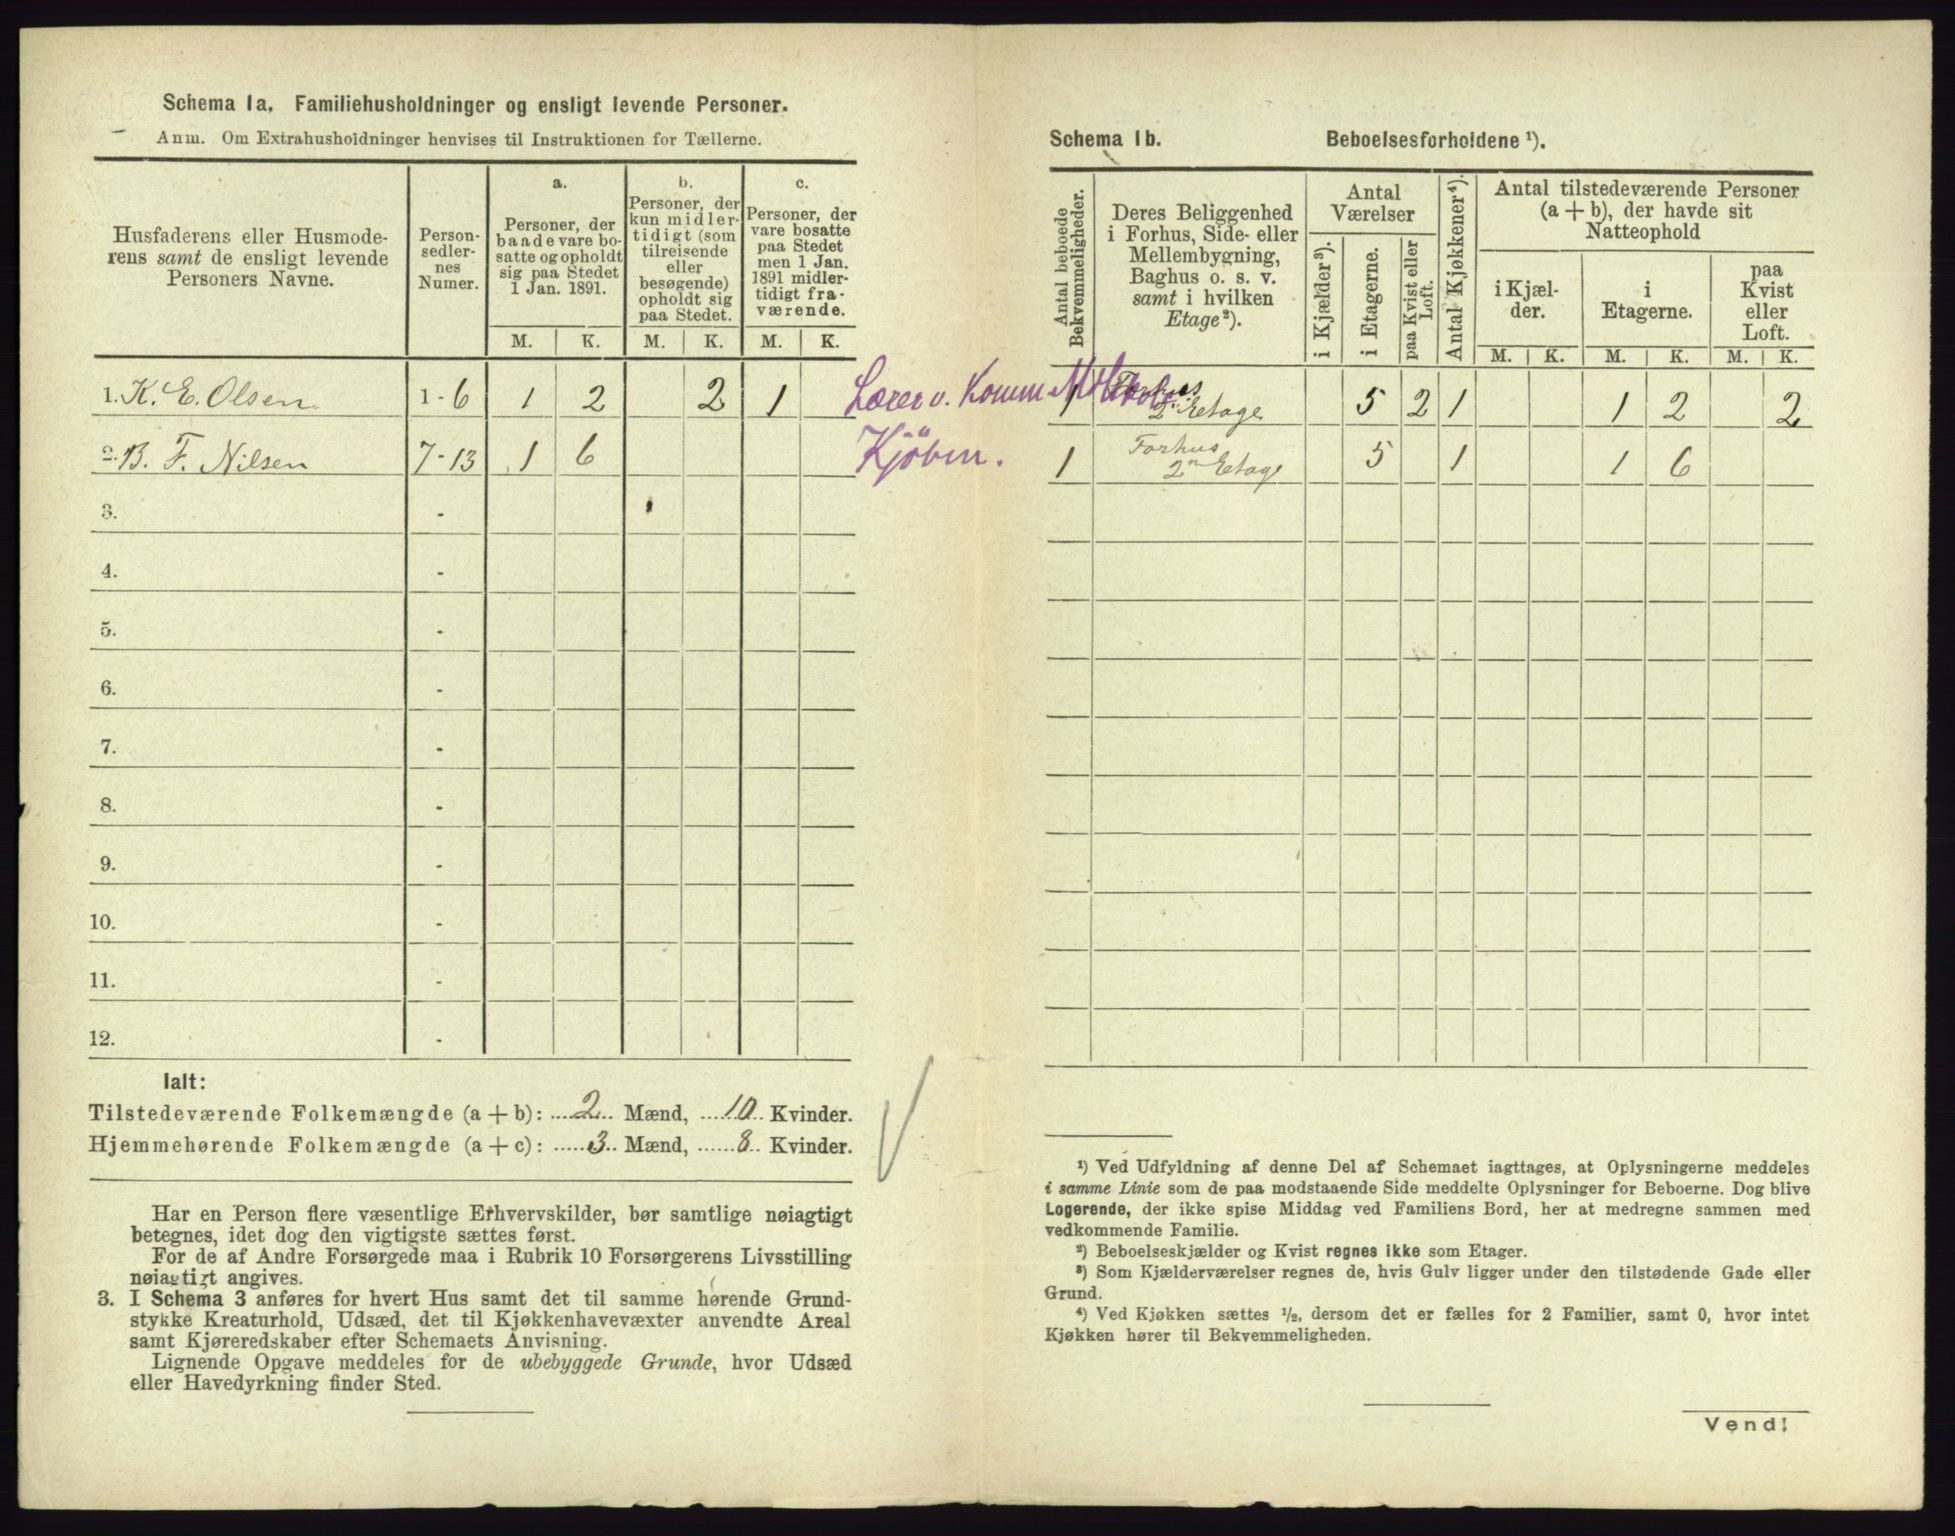 Schema 1a. Familiehusholdninger og ensligt levende Personer.
Anm. Om Extrahusholdninger henvises til Instruktionen for Tællerne.
Husfaderens eller Husmode-
rens samt de ensligt levende
Personers Navne.
Person-
sedler-
nes
Numer.
a.
Personer, der
baade vare bo-
satte og opholdt
sig paa Stedet
1 Jan. 1891.
b.
Personer, der
kun midler-
tidigt (som
tilreisende
eller
besøgende)
opholdt sig
paa Stedet.
c.
Personer, der
vare bosatte
paa Stedet
men 1 Jan.
1891 midler-
tidigt fra-
værende.
M. K. M. K. M. K.
1. K. E. Olsen. 1-6 1 2 2 1 Lærer v. Komm
2. B. F. Nilsen 7-13 1 6 Kjöbm.
3. -
4. -
5. -
6. -
7. -
8. -
9. -
10. -
11. -
12. -
Ialt:
Tilstedeværende Folkemængde (a + b): 2 Mænd, 10 Kvinder.
Hjemmehørende Folkemængde (a + c): 3 Mænd, 8 Kvinder.
Har en Person flere væsentlige Erhvervskilder, bør samtlige nøiagtigt
betegnes, idet dog den vigtigste sættes først.
For de af Andre Forsørgede maa i Rubrik 10 Forsørgerens Livsstilling
nøiagtigt angives.
3. I Schema 3 anføres for hvert Hus samt det til samme hørende Grund-
stykke Kreaturhold, Udsæd, det til Kjøkkenhavevæxter anvendte Areal
samt Kjøreredskaber efter Schemaets Anvisning.
Lignende Opgave meddeles for de ubebyggede Grunde, hvor Udsæd
eller Havedyrkning finder Sted.
Schema 1b. Beboelsesforholdene ¹).
Antal beboede
Bekvemmeligheder.
Deres Beliggenhed
i Forhus, Side- eller
Mellembygning,
Baghus o. s. v.
samt i hvilken
Etage²).
Antal
Værelser
i Kjælder³).
i Etagerne.
paa Kvist eller
Loft.
Antal Kjøkkener⁴).
Antal tilstedeværende Personer
(a + b), der havde sit
Natteophold
i Kjæl-
der.
i
Etagerne.
paa
Kvist
eller
Loft.
M. K. M. K. M. K.
1 Forhus
2 Etage 5 2 1 1 2 2
1 Forhus
2n Etage 5 1 1 6
¹) Ved Udfyldning af denne Del af Schemaet iagttages, at Oplysningerne meddeles
i samme Linie som de paa modstaaende Side meddelte Oplysninger for Beboerne. Dog blive
Logerende, der ikke spise Middag ved Familiens Bord, her at medregne sammen med
vedkommende Familie.
²) Beboelseskjælder og Kvist regnes ikke som Etager.
³) Som Kjælderværelser regnes de, hvis Gulv ligger under den tilstødende Gade eller
Grund.
⁴) Ved Kjøkken sættes ½, dersom det er fælles for 2 Familier, samt 0, hvor intet
Kjøkken hører til Bekvemmeligheden.
Vend!